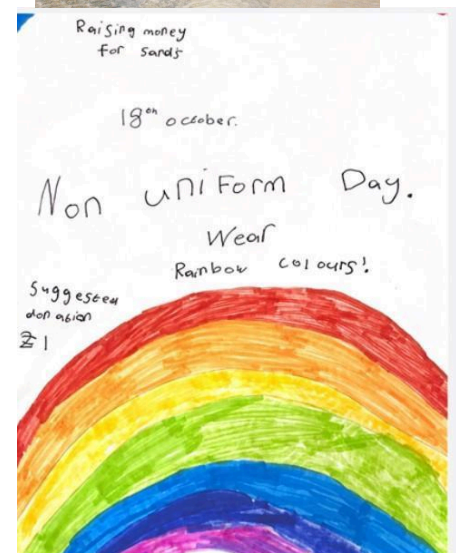 Raising money
for Sands
18th october.
Non uniForm Day.
Wear
Rainbow colours!
Suggested
donation
£1